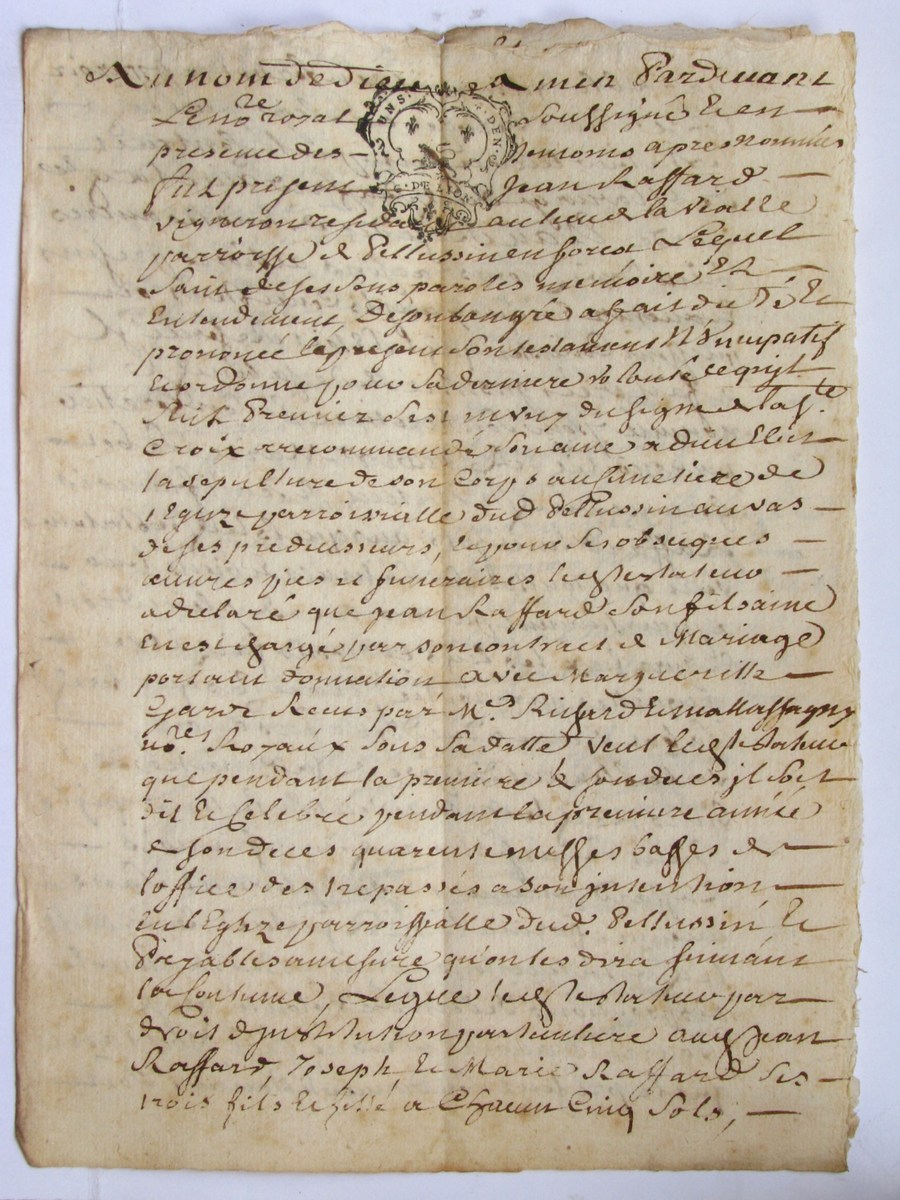 Au nom de dieu amen Pardevant
Le no.re royal soussigné et en
presence des temoins apres nommés
fut present Jean Raffard
vigneron residant au lieu de la Vialle
parroisse de Pellussin en forest Lequel
Sain de ses sens parolles memoire Et
Entendement, De son bon gré a fait dicté Et
prononcé le present son testament Nuncupatif
et ordonne pour sa derniere volonté ce qui s'
Suit Premier s'est muny du signe de la s.te
Croix recommandé son ame a dieu Elut
la sepulture de son Corps au Simetiere de
l'Eglize parroissialle dud Pellussin au vas
de ses predecesseurs, et pour ses obseques
œuvres pies et funeraires led testateur
a declaré que jean Raffard son fils ainé
En est chargé par son contract de Mariage
portant donnation avec Margueritte
Recus par M.es Richard Et
no.res Royaux sous sa datte, veut led testateur
que pendant la premiere de son deces jl soit
dit Et Celebré pendant la premiere année
de son deces quarente messes basses de
l'office des trepassés a son jntention
En l'Eglize parroissialle dud. Pellussin Et
Payables a mesure qu'on les dira suivant
la Coutume, Legue led testateur par
droit d'institution particuliere aud Jean
Raffard, Joseph Et Marie Raffard ses
trois fils et fille a Chacun Cinq sols,